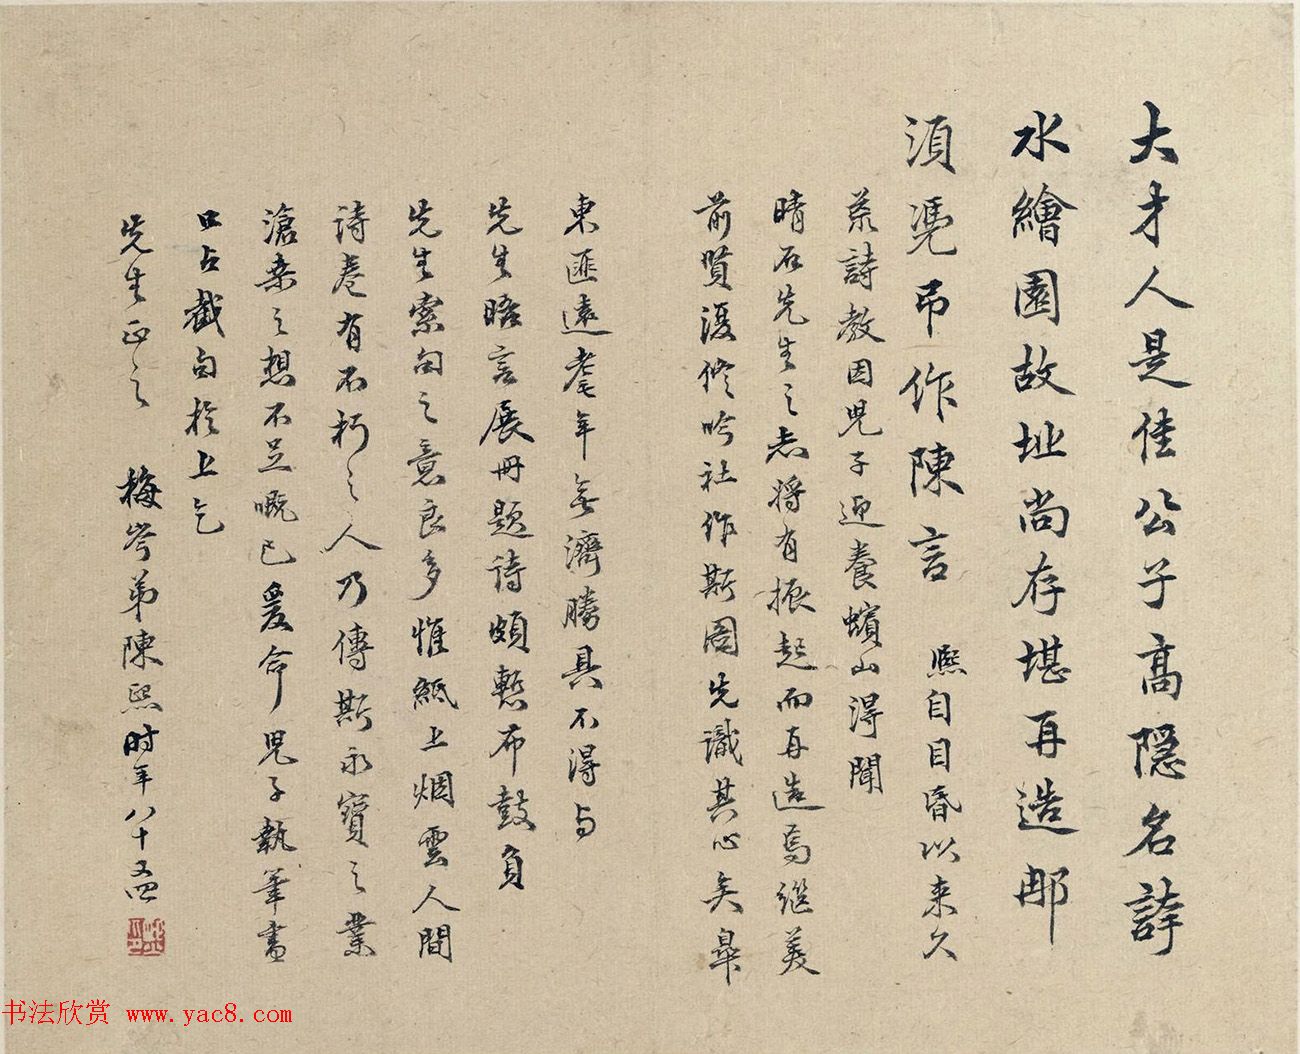 大才人是佳公子高隱名誇
水繪園故址尚存堪再造那
須憑弔作陳言 熙自目昏以来久
荒詩教因児子迎養蠙山得聞
晴石先生之志將有振起而再造焉继美
前賢復修吟社作斯圖先識其心矣皋
東匪遠耄年無濟勝具不得与
先生晤言展冊題詩頗慙布鼓負
先生索句之意良多惟紙上烟雲人間
詩卷有不朽之人乃傳斯永寶之業
滄桑之想不足嘅已爰命児子執筆書
口占截句於上乞
先生正之 梅岑弟陳熙时年八十又四
书法欣赏 www.yac8.com